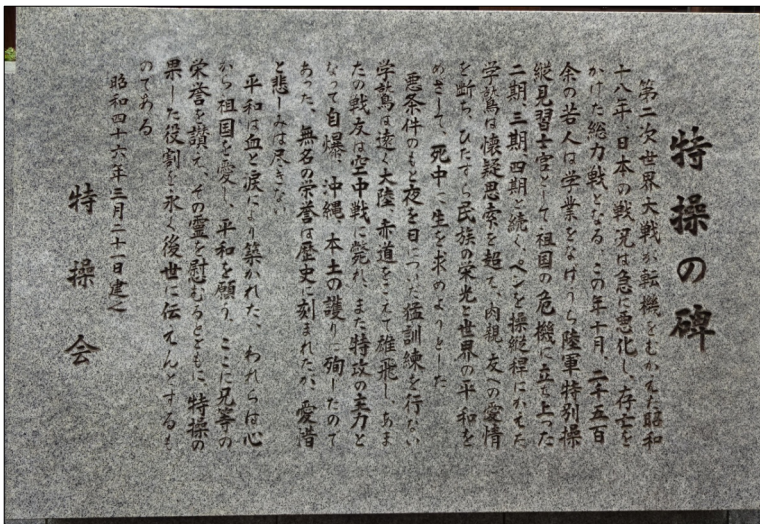 特操の碑
第二次世界大戦が転機をむかえた昭和
十八年、日本の戦況は急に悪化し、存亡を
かけた総力戦となる この年十月、二千五百
余の若人は学業をなげうち陸軍特別操
縦見習士官として祖国の危機に立ち上った
二期、三期、四期と続く、ペンを操縦桿にかえた
学鷲は懐疑思索を超て、肉親、友への愛情
を断ち、ひたすら民族の栄光と世界の平和を
めざして、死中に生を求めようとした
悪条件のもと夜を日についだ猛訓練を行ない
学鷲は遠く大陸、赤道をこえて雄飛し、あま
たの戦友は空中戦に斃れ、また特攻の主力と
なって自爆、沖縄、本土の護りに殉じたので
あった、無名の栄誉は歴史に刻まれたが、愛惜
と悲しみは尽きない
平和は血と涙により築かれた、われらは心
から祖国を愛し、平和を願う、ここに兄等の
栄誉を讃え、その霊を慰むるとともに、特操の
果した役割を永く後世に伝えんとするも
のである
昭和四十六年三月二十一日建之
特操会